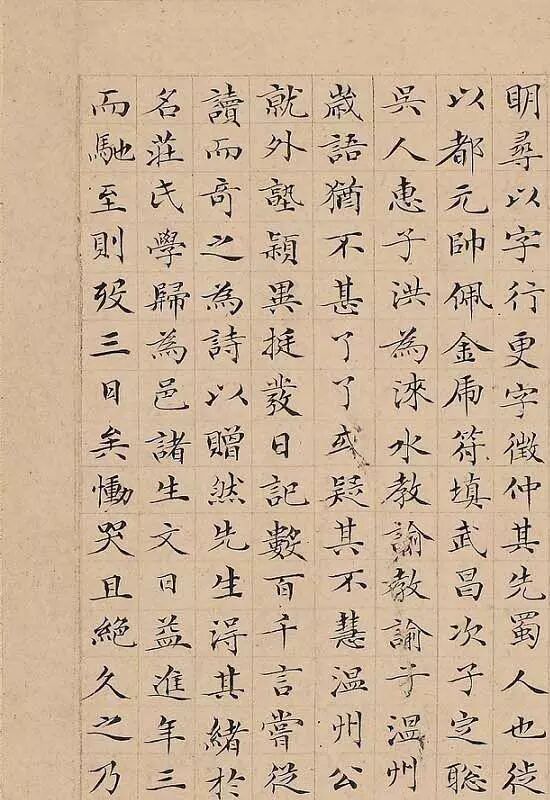 明尋以字行更字徵仲其先蜀人也徙
以都元帥佩金虎符填武昌次子定聦
吳人惠子洪為淶水教諭教諭子溫州
歲語猶不甚了了或疑其不慧溫州公
就外塾穎異挺發日記數百千言嘗從
讀而奇之為詩以贈然先生淂其緒於
名莊氏學歸為邑諸生文日益進年三
而馳至則歿三日矣慟哭且絕久之乃